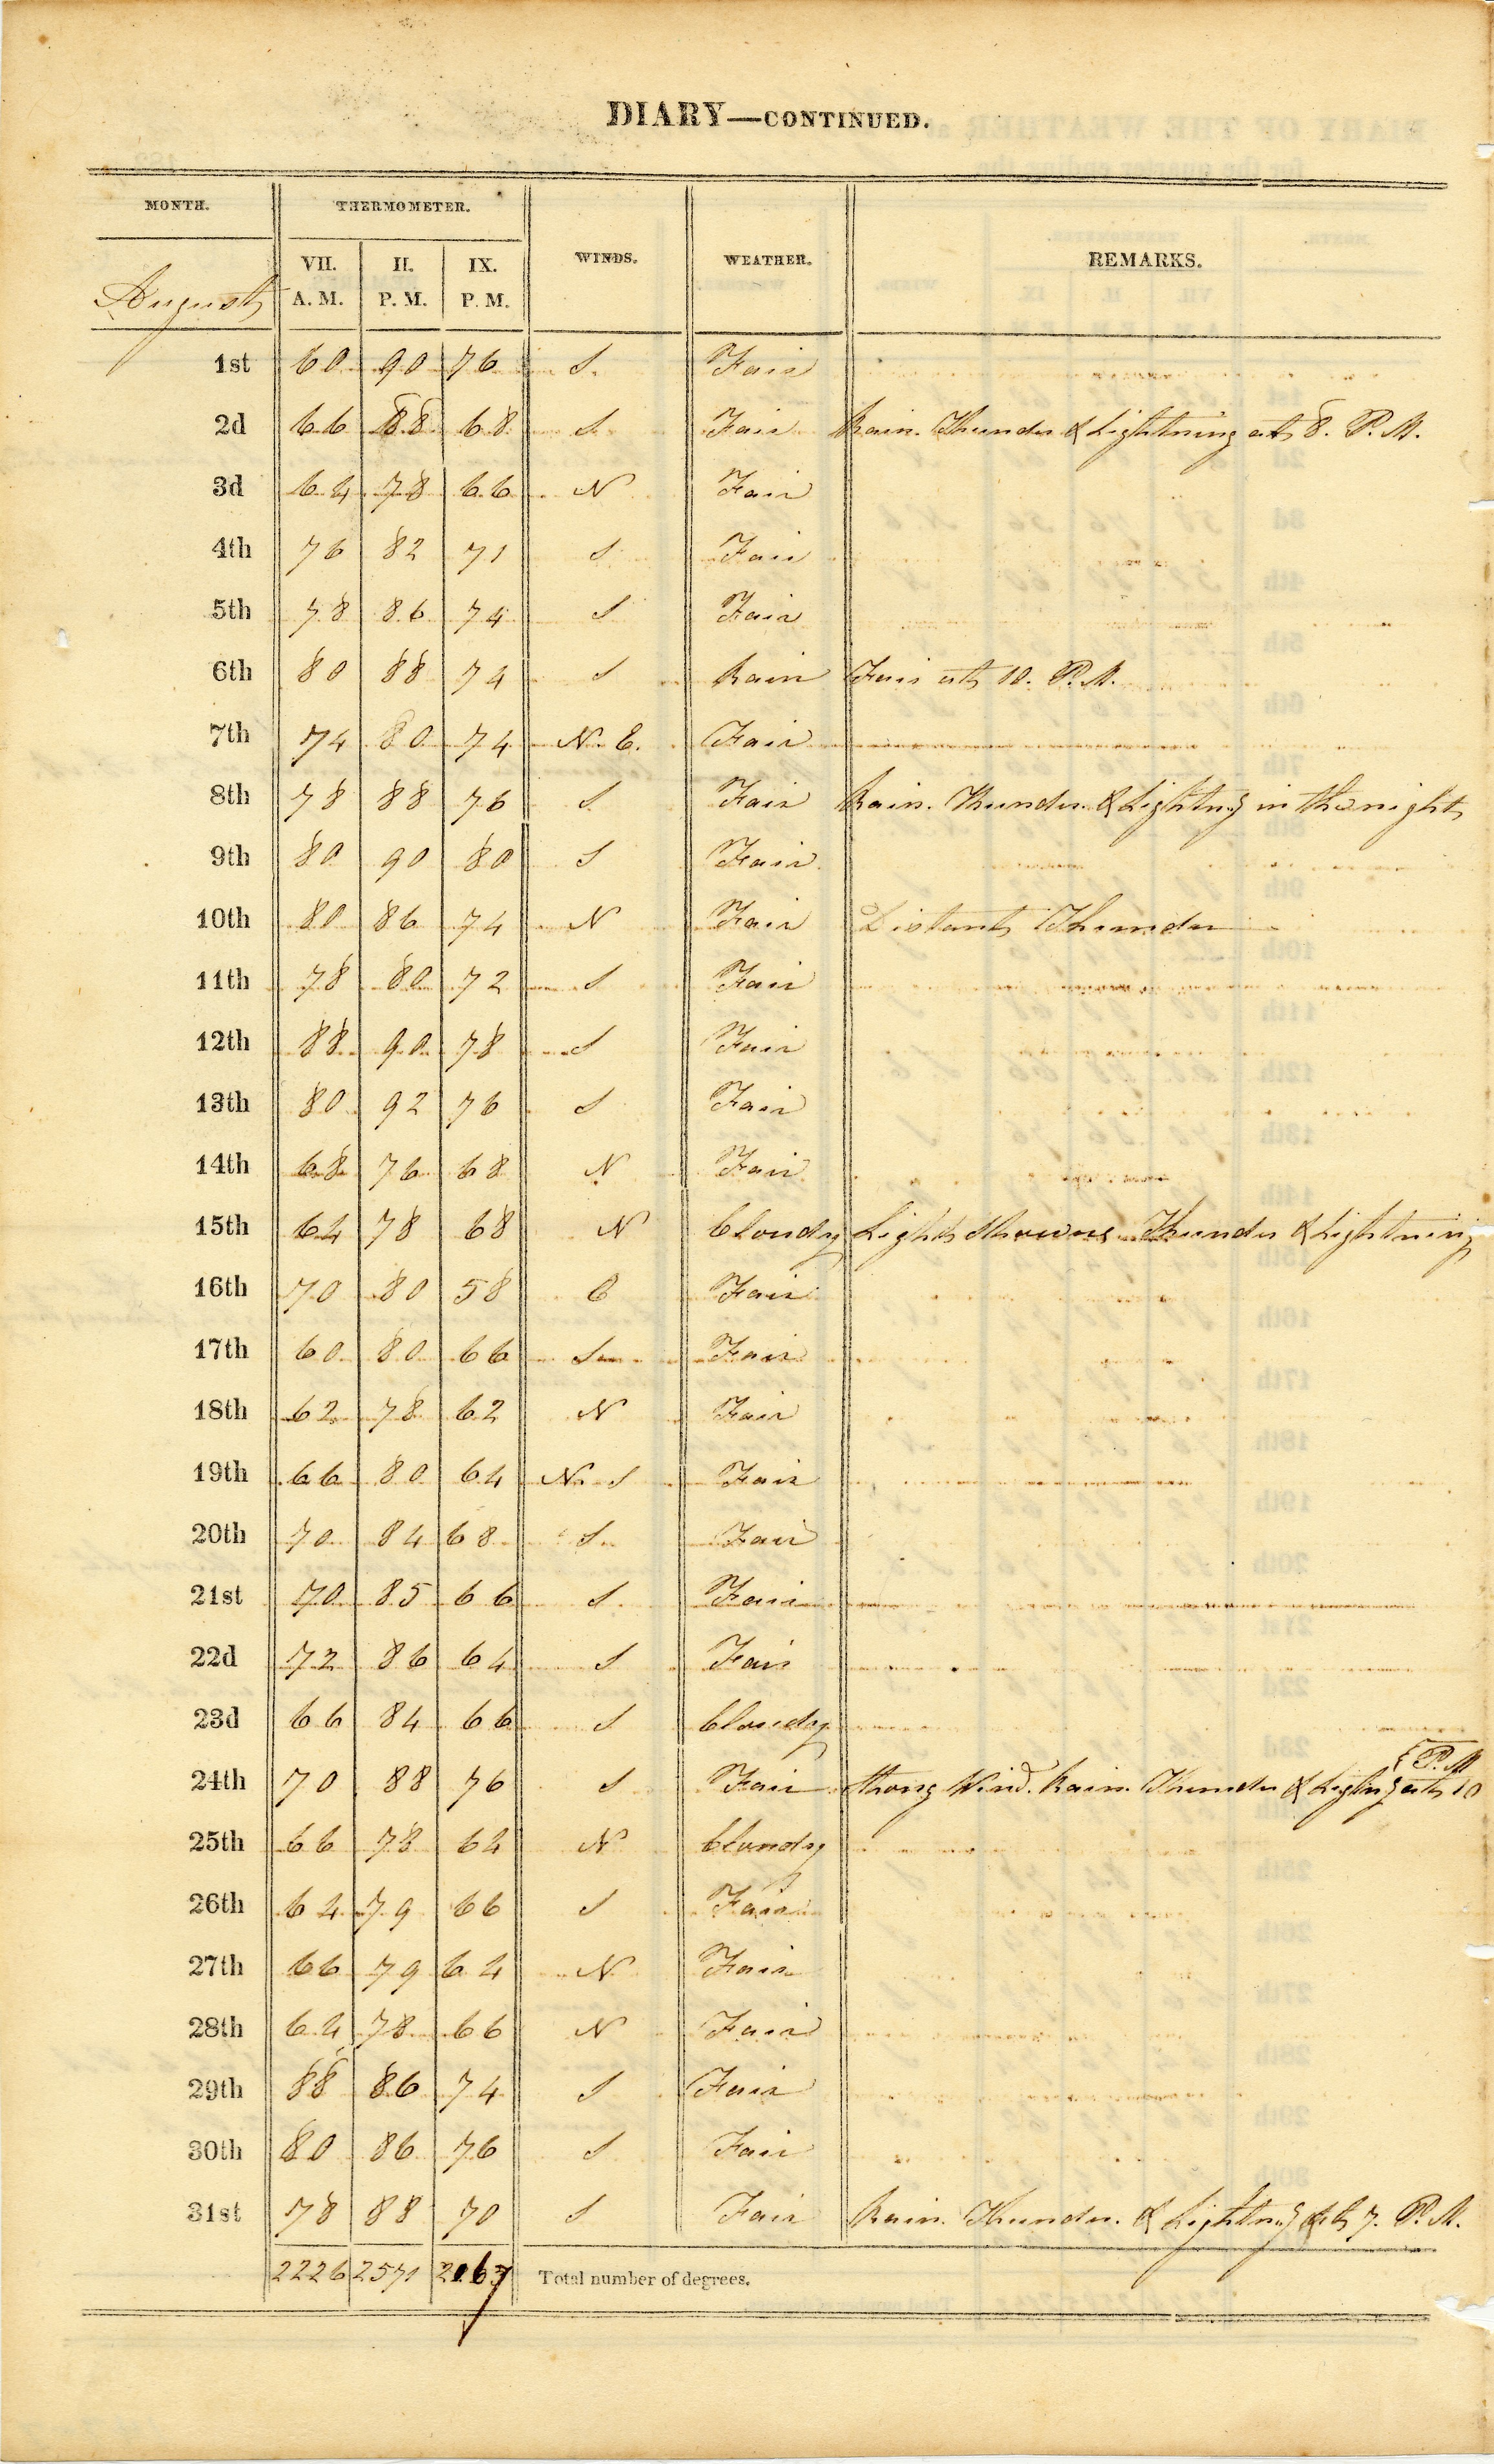 DIARY—CONTINUED.
MONTH. THERMOMETER. WINDS. WEATHER. REMARKS.
VII. II. IX.
August A. M. P. M. P. M.
1st 60 90 76 S. Fair
2d 66 88 68 S Fair Rain. Thunder & Lightning at 8. P. M.
3d 64 78 66 N Fair
4th 76 82 71 S Fair
5th 78 86 74 S Fair
6th 80 88 74 S Rain Fair at 10. P. M.
7th 74 80 74 N. E. Fair
8th 78 88 76 S Fair Rain. Thunder. & Lightng in the night
9th 80 90 80 S Fair
10th 80 86 74 N Fair Distant Thunder
11th 78 80 72 S Fair
12th 88 90 78 S Fair
13th 80 92 76 S Fair
14th 68 76 68 N Fair
15th 64 78 68 N Cloudy Light Showers Thunder & Lightning
16th 70 80 58 E Fair
17th 60 80 66 S Fair
18th 62 78 62 N Fair
19th 66 80 64 N. S Fair
20th 70 84 68 S. Fair
21st 70 85 66 S. Fair
22d 72 86 64 S Fair
23d 66 84 66 S Cloudy
P. M
24th 70 88 76 S Fair Strong Wind. Rain. Thunder & Lightng at 10
25th 66 78 64 N Cloudy
26th 64 79 66 S Fair
27th 66 79 64 N Fair
28th 64 78 66 N Fair
29th 88 86 74 S Fair
30th 80 86 76 S Fair
31st 78 88 70 S Fair Rain. Thunder. & Lightng at 7. P. M.
2226 2571 2167 Total number of degrees.